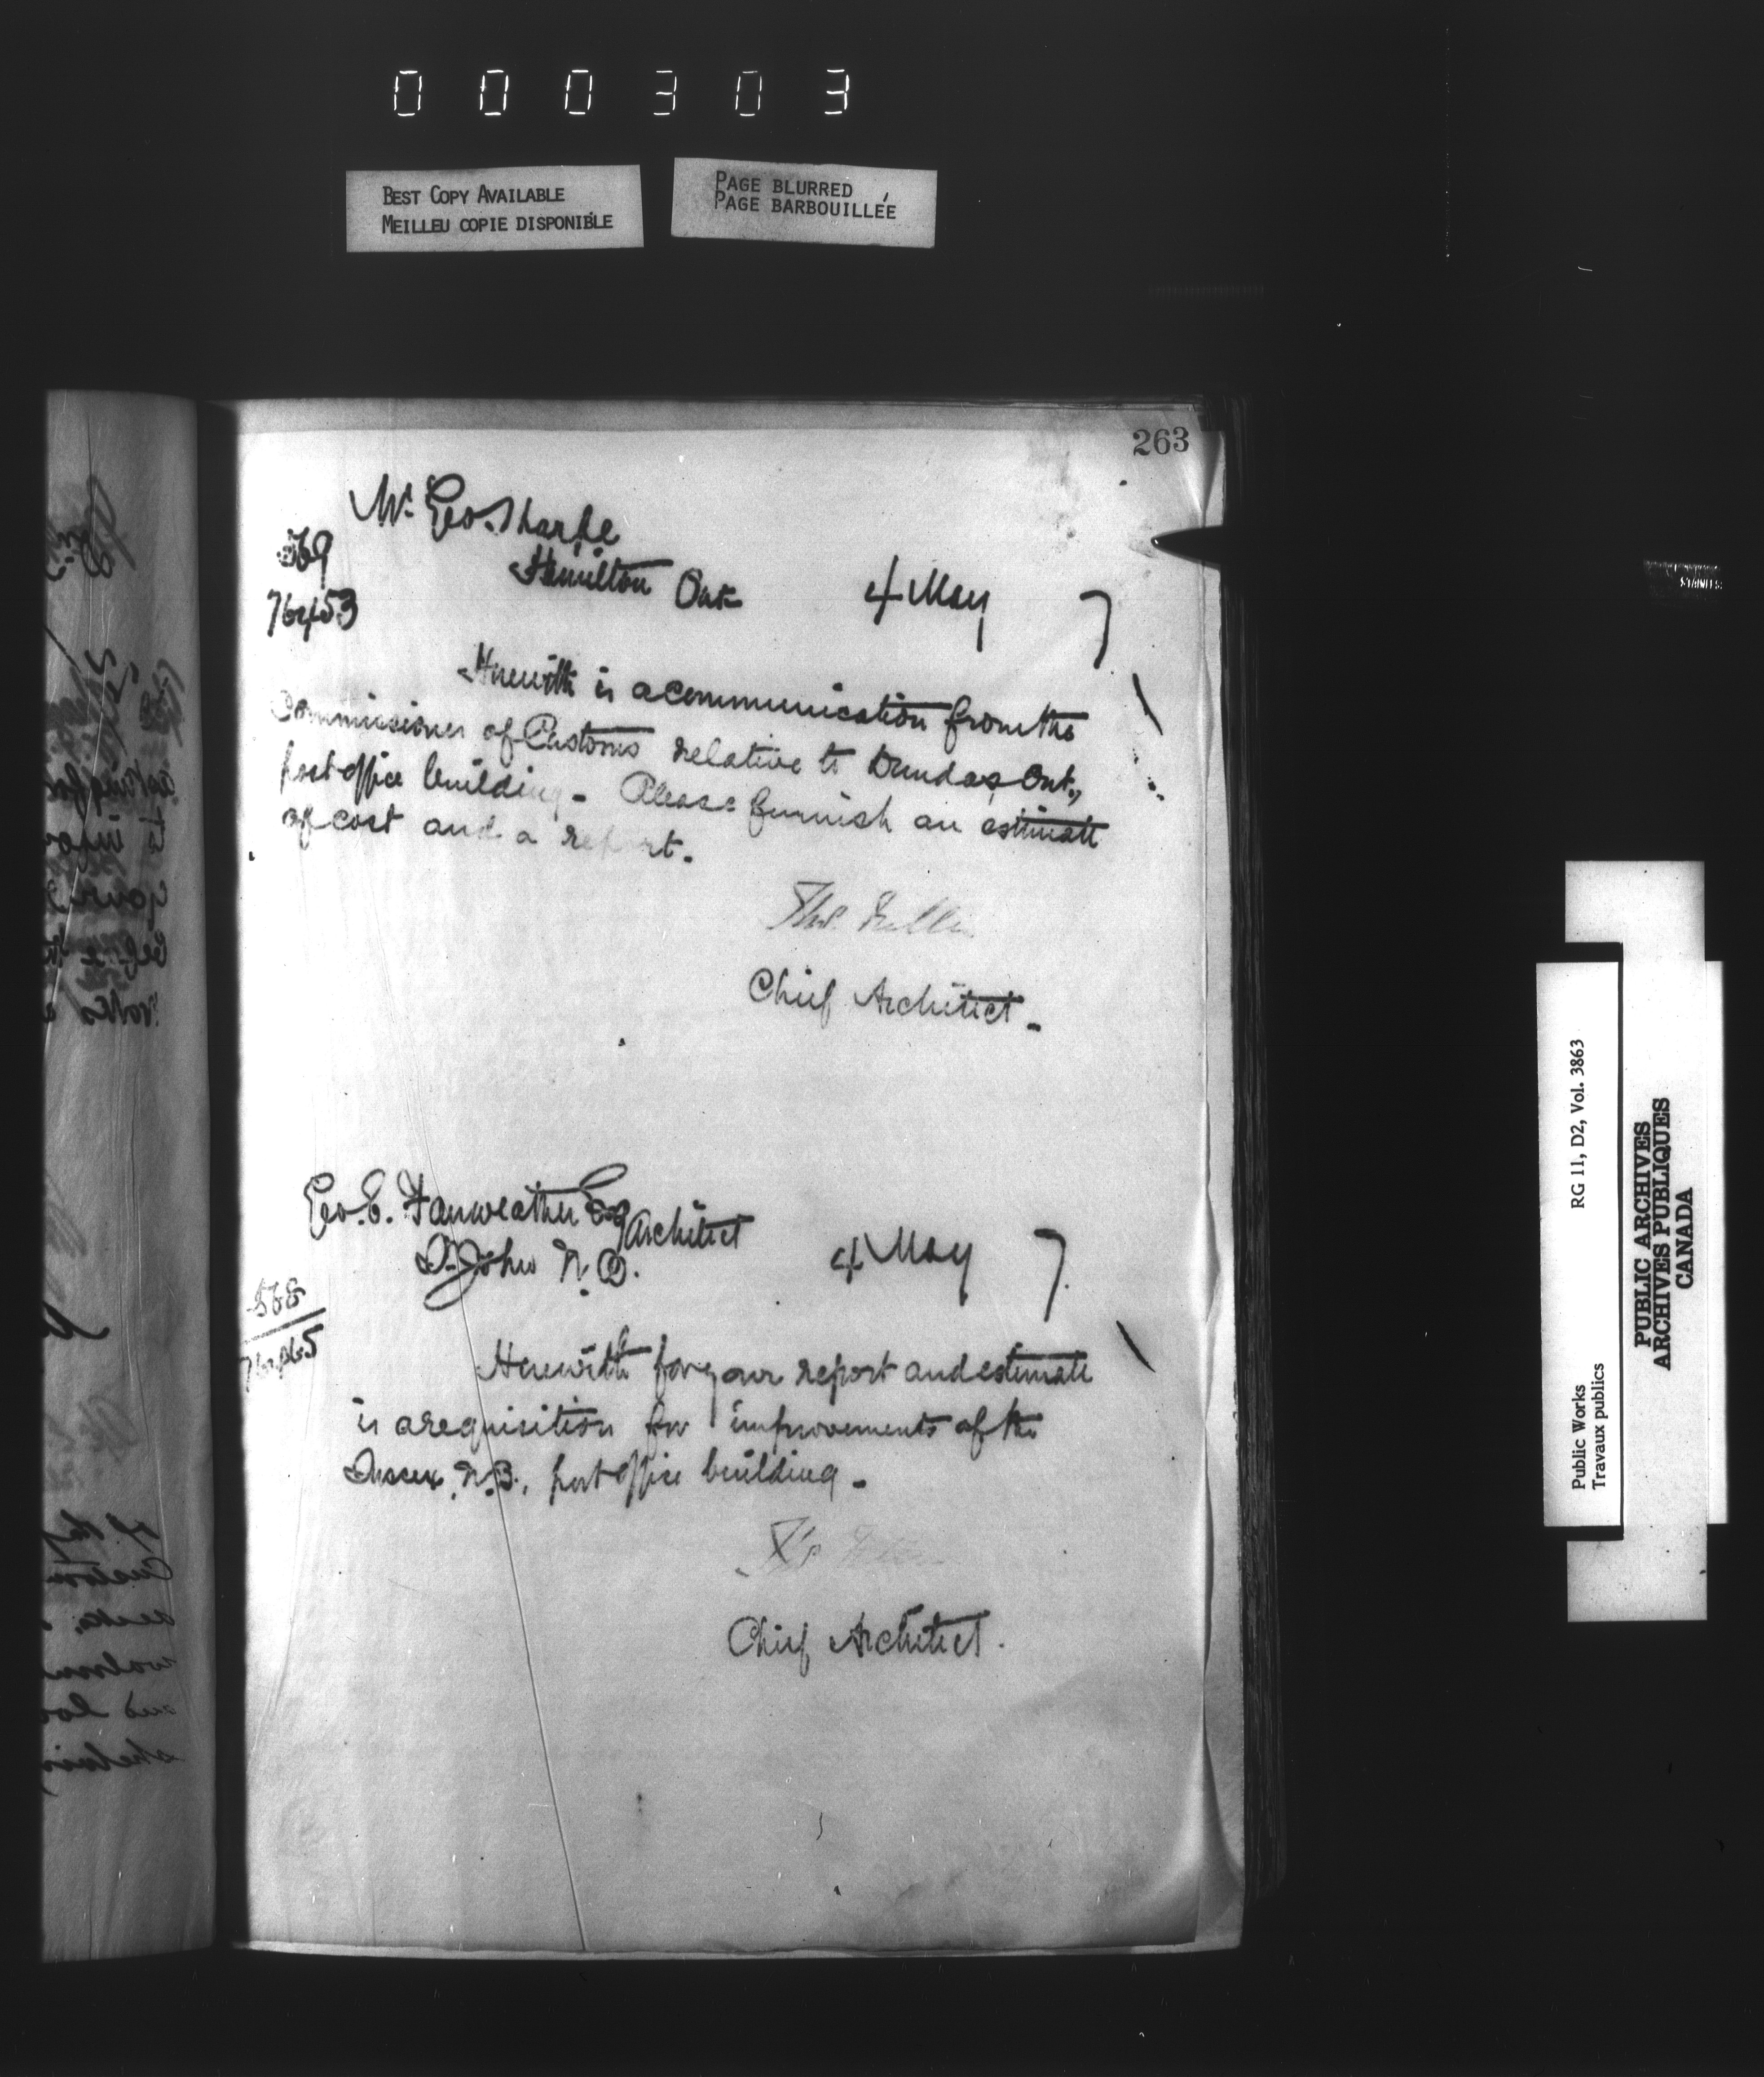 000303
BEST COPY AVAILABLE
MEILLEU COPIE DISPONIBLE
PAGE BLURRED
PAGE BARBOUILLÉE
263
Mr Geo. Sharpe
Hamilton Ont
4 May 7
569
76453
Herewith is a communication from the
Commissioner of Customs relative to Dundas, Ont.,
post office building - Please furnish an estimate
of cost and a report.
Thos. Fuller
Chief Architect -
Geo. E. Fairweather Esq Architect
St. John N.B.
4 May 7.
568
Herewith for your report and estimate
is a requisition for improvements of the
Sussex, N.B., post office building -
Chief Architect.
RG 11, D2, Vol. 3863
Public Works
Travaux publics
PUBLIC ARCHIVES
ARCHIVES PUBLIQUES
CANADA